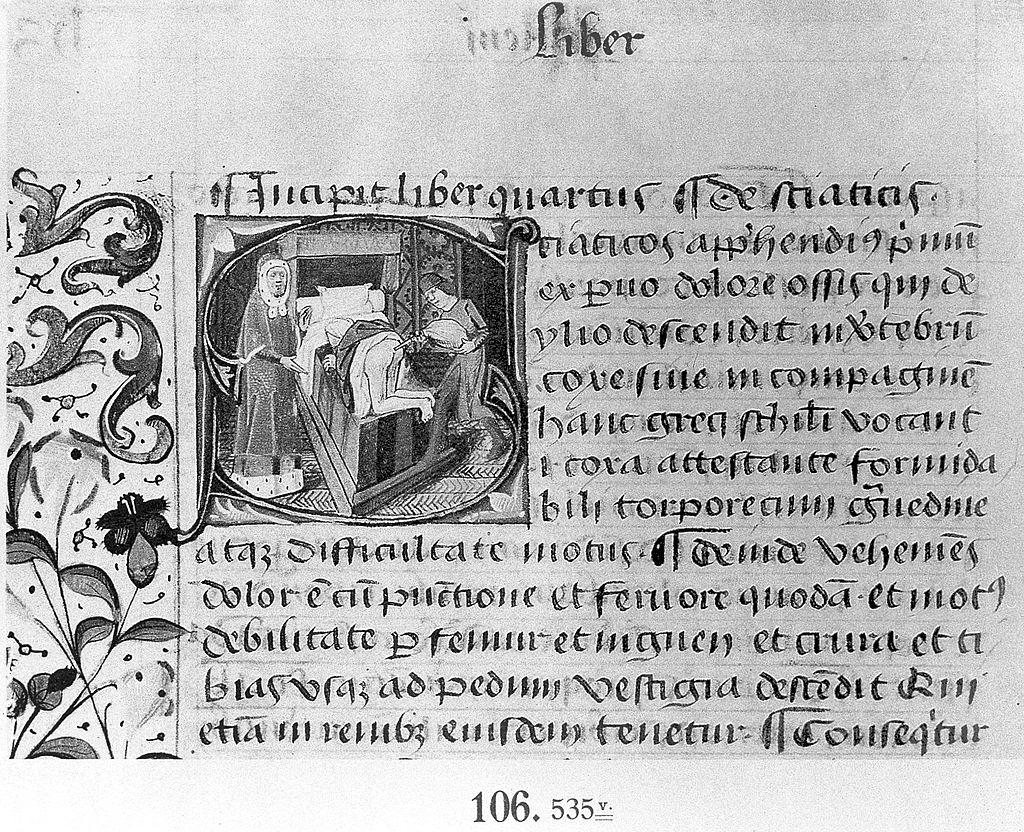 Liber
¶ Incipit liber quartus ¶ De sciaticis.
ciaticos app'hendiꝰ p̱muū
ex ꝑuo dolore ossis qui de
ylio descendit
coxe siue in compagine
hanc greci vocant
coxa attestante formida
bili torpore cum
atqꝫ difficultate motus. ¶ Deinde vehemēs
dolor ē cū pūctione et feruore quodā. et motꝰ
debilitate ꝑ femur et inguen et crura et ti
bias vsqꝫ ad pedum vestigia descēdit Qui
etiā in renibꝫ eiusdem tenetur. ¶ Conseq'tur
106. 535v.